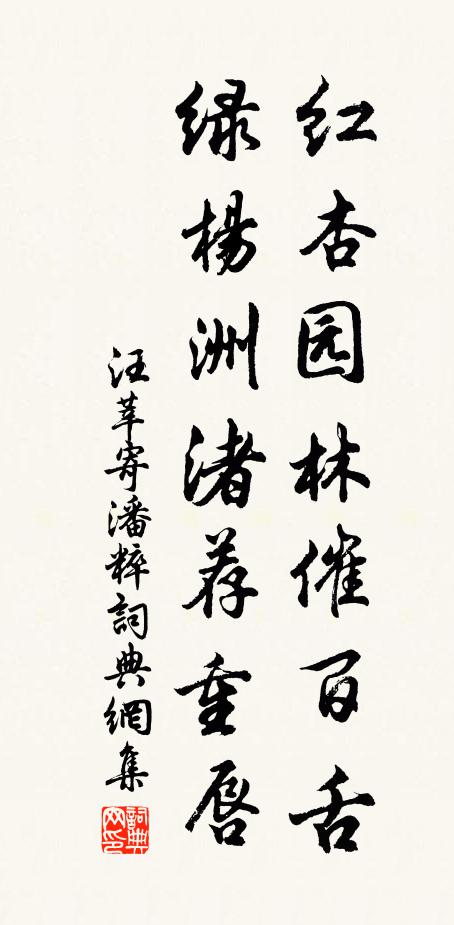 红杏园林催百舌
绿楊洲渚荐重唇
汪莘寄潘粹詞典網集
詞典网印